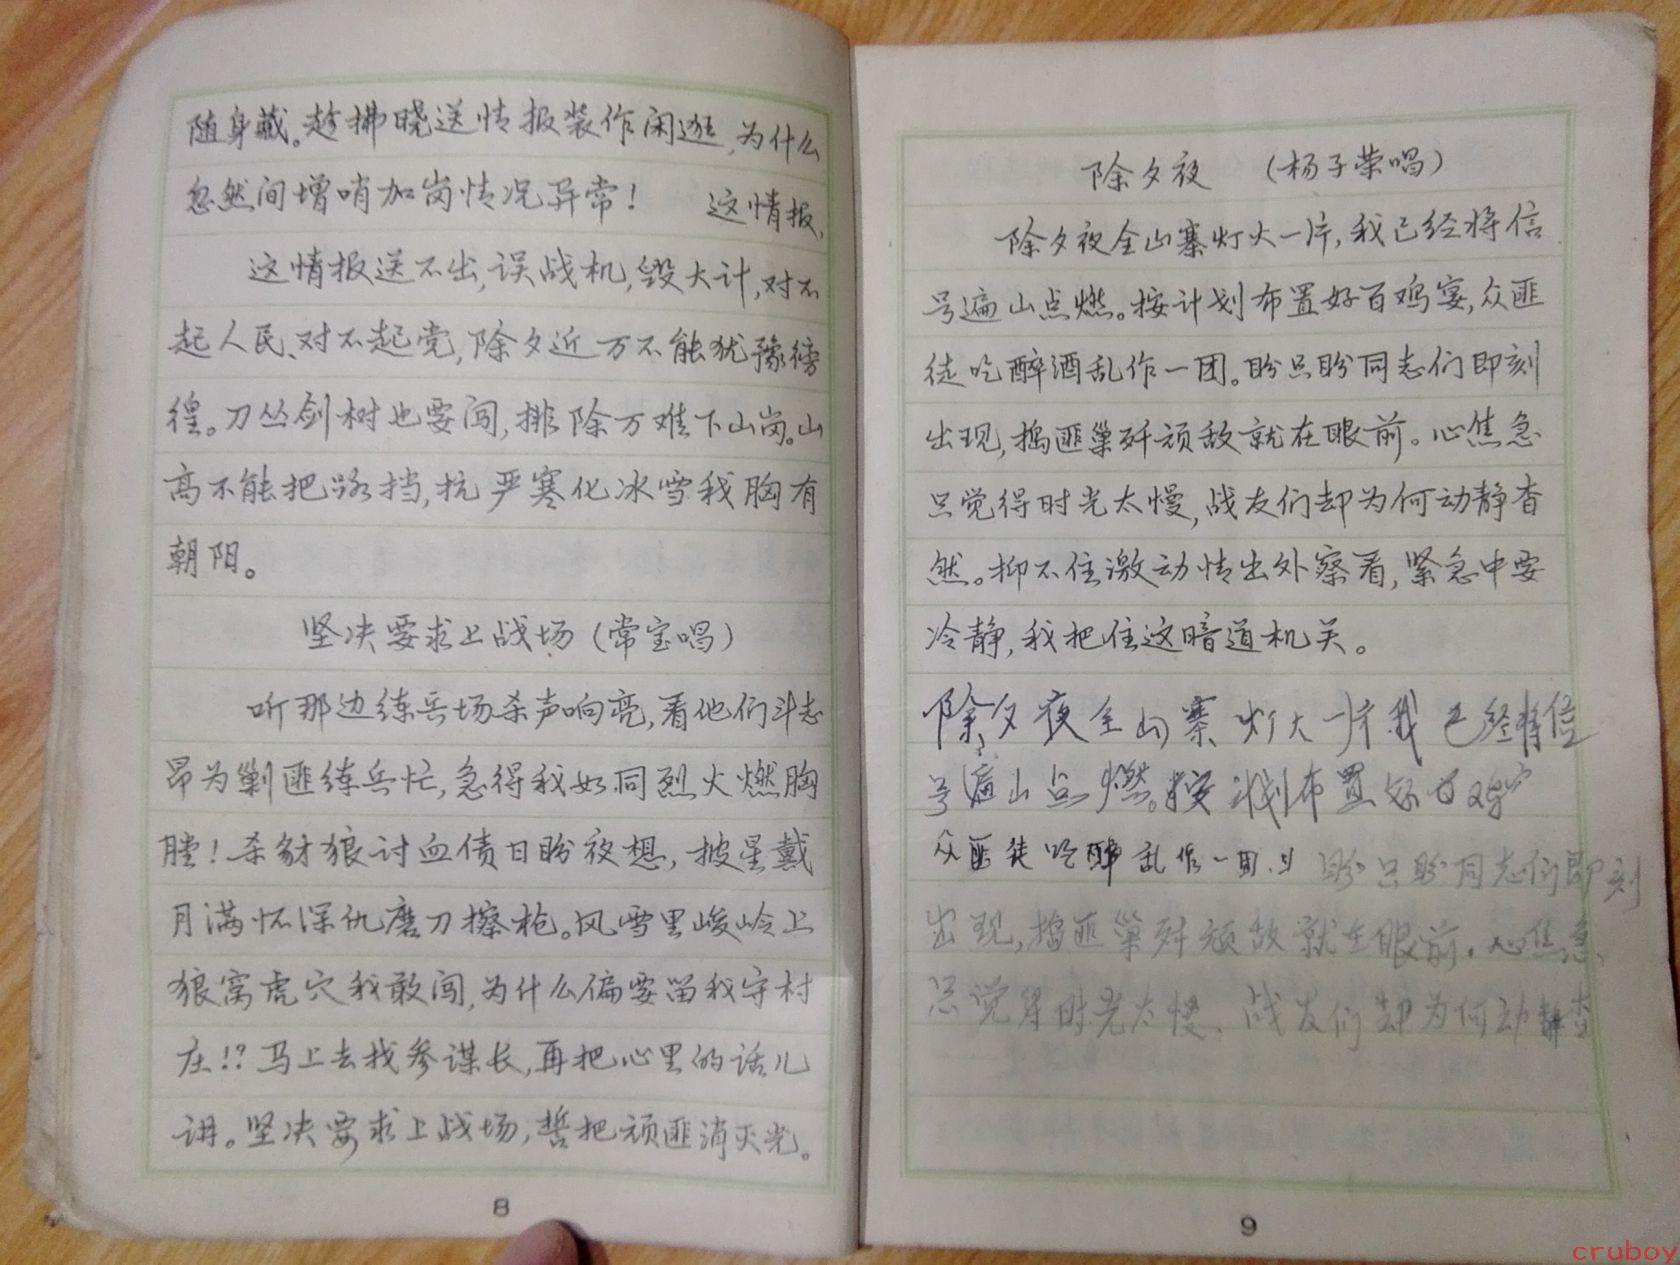 随身藏。趁拂晓送情报装作闲逛,为什么
忽然间增哨加岗情况异常! 这情报,
这情报送不出,误战机,毁大计,对不
起人民、对不起党,除夕近万不能犹豫徬
徨。刀丛剑树也要闯,排除万难下山岗。山
高不能把路挡,抗严寒化冰雪我胸有
朝阳。
坚决要求上战场(常宝唱)
听那边练兵场杀声响亮,看他们斗志
昂为剿匪练兵忙,急得我如同烈火燃胸
膛!杀豺狼讨血债日盼夜想,披星戴
月满怀深仇磨刀擦枪。风雪里峻岭上
狼窝虎穴我敢闯,为什么偏要留我守村
庄!?马上去找参谋长,再把心里的话儿
讲。坚决要求上战场,誓把顽匪消灭光。
8
除夕夜 (杨子荣唱)
除夕夜全山寨灯火一片,我已经将信
号遍山点燃。按计划布置好百鸡宴,众匪
徒吃醉酒乱作一团。盼只盼同志们即刻
出现,捣匪巢歼顽敌就在眼前。心焦急
只觉得时光太慢,战友们却为何动静杳
然。抑不住激动情出外察看,紧急中要
冷静,我把住这暗道机关。
除夕夜全山寨灯火一片我已经将信
号遍山点燃。按计划布置好百鸡
众匪徒吃醉乱作一团
盼只盼同志们即刻
出现,捣匪巢歼顽敌就在眼前。心焦急
只觉得时光太慢、战友们却为何动静杳
9
cruboy